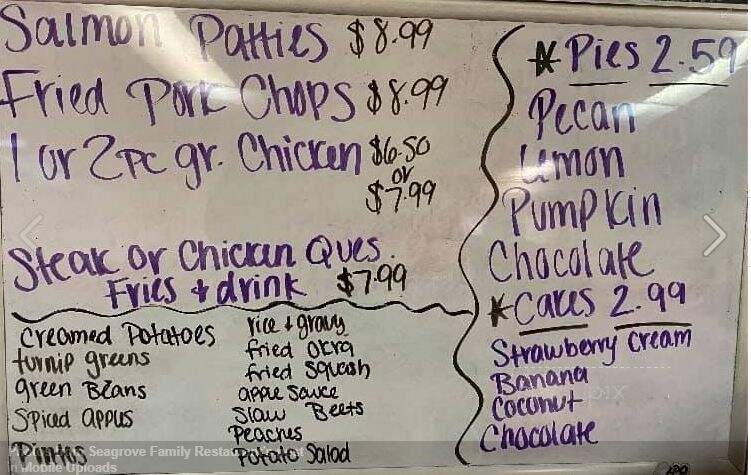 Salmon Patties $8.99
Fried Pork Chops $8.99
1 or 2 PC gr. Chicken $6.50
or
$7.99
Steak or Chicken Ques.
Fries + drink $7.99
Creamed Potatoes
turnip greens
green Beans
Spiced apples
Pintos
rice + gravy
fried okra
fried squash
apple Sauce
Slaw Beets
Peaches
Potato Salad
* Pies 2.59
Pecan
Lemon
Pumpkin
Chocolate
* Cakes 2.99
Strawberry Cream
Banana
Coconut
Chocolate
Seagrove Family Restau
in Mobile Uploads